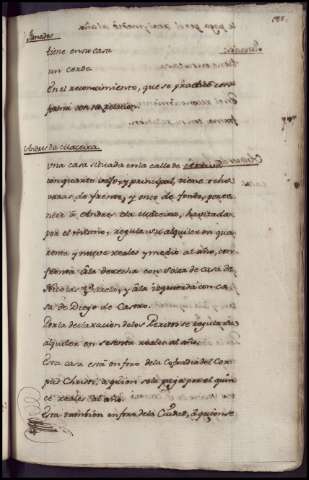 Ganados
tiene en su casa
un cerdo
En el reconocimiento, que se practicó con-
forma con su relacion.
Andres da Maceira
Una casa situada en la calle de
con quarto vajo, y principal, tiene ocho
varas de frente, y once de fondo, perte-
nece a Andres da Maceira, havitada
por el mismo, regula su alquiler en qua-
renta y nueve reales y medio al año, con-
fronta a la derecha con casa de
Nicolas Varela, y a la izquierda con ca-
sa de Diego de Castro.
Por la declaracion de los Peritos se regula su
alquiler en setenta reales al año.
Esta casa está en foro de la Cofradia del Cor-
pus Christi, a quien solo paga por el quin-
ce reales al año.
Esta tambien en foro de la Ciudad, a quien se